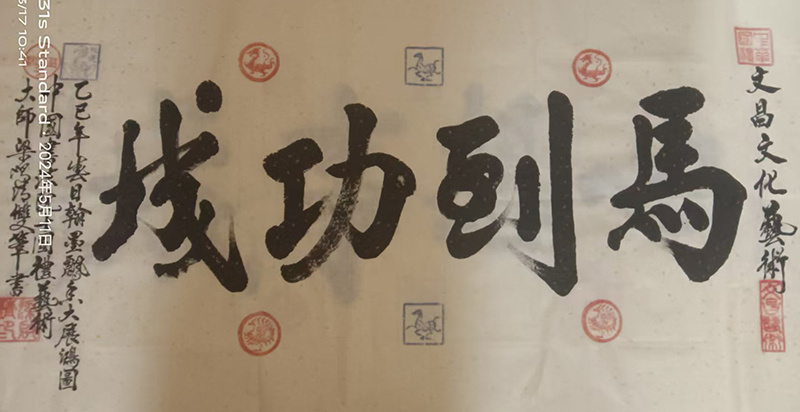 文昌文化藝術
馬到功成
乙巳年 日翰墨飄香大展鴻圖
中国 國禮藝術
大师梁 清雙筆書
31s Standard 2024年5月11日
5/17 10:41